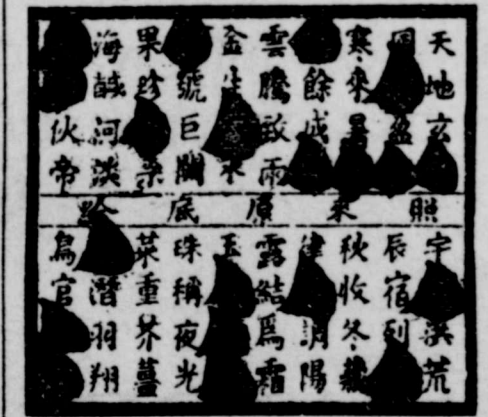 天地玄
盈
寒來暑
餘成
雲騰致雨
金生水
號巨闕
果珍柰
海鹹河淡
火帝
照來原底
宇洪荒
辰宿列
秋收冬藏
律調陽
露結爲霜
玉
珠稱夜光
菜重芥薑
潛羽翔
鳥官